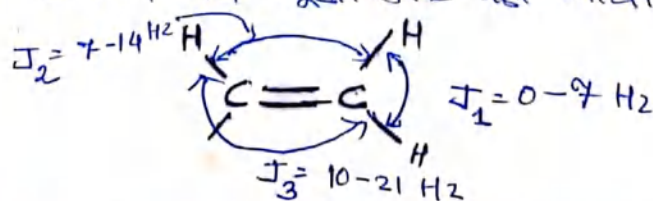 J₂ = 7-14 Hz H H
C = C J₁ = 0 - 7 Hz
H
J₃ = 10-21 Hz